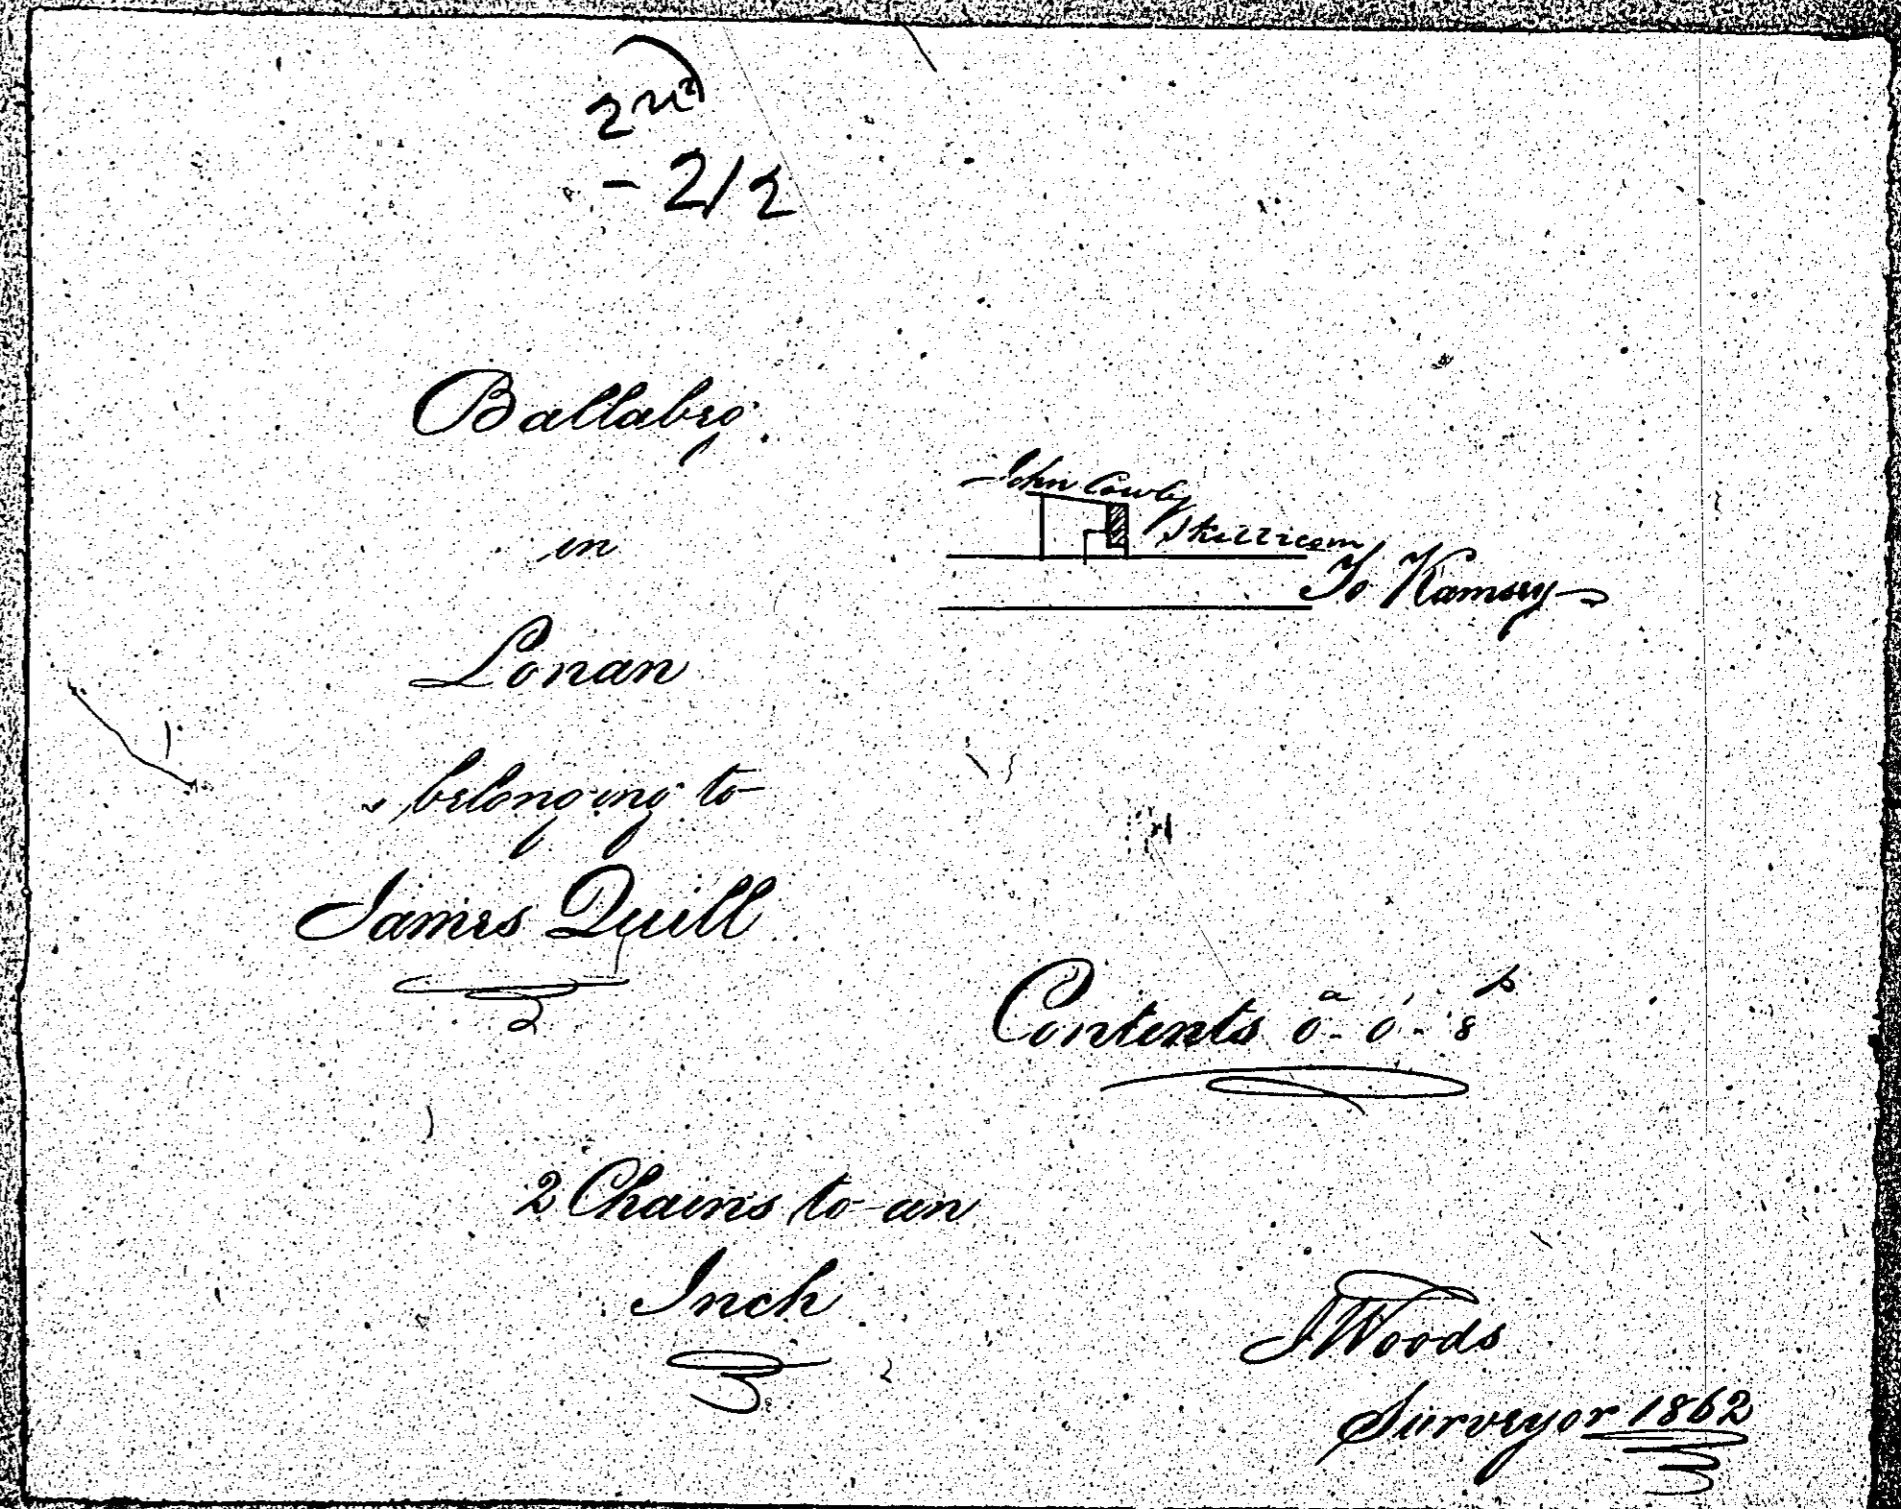 2nd
- 2/2
Ballabeg
in
Lonan
belonging to
James Quill
John Cowley
Skillicorn
To Ramsey
a r p
Contents 0 - 0 - 8
2 Chains to an
Inch
J Woods
Surveyor 1862